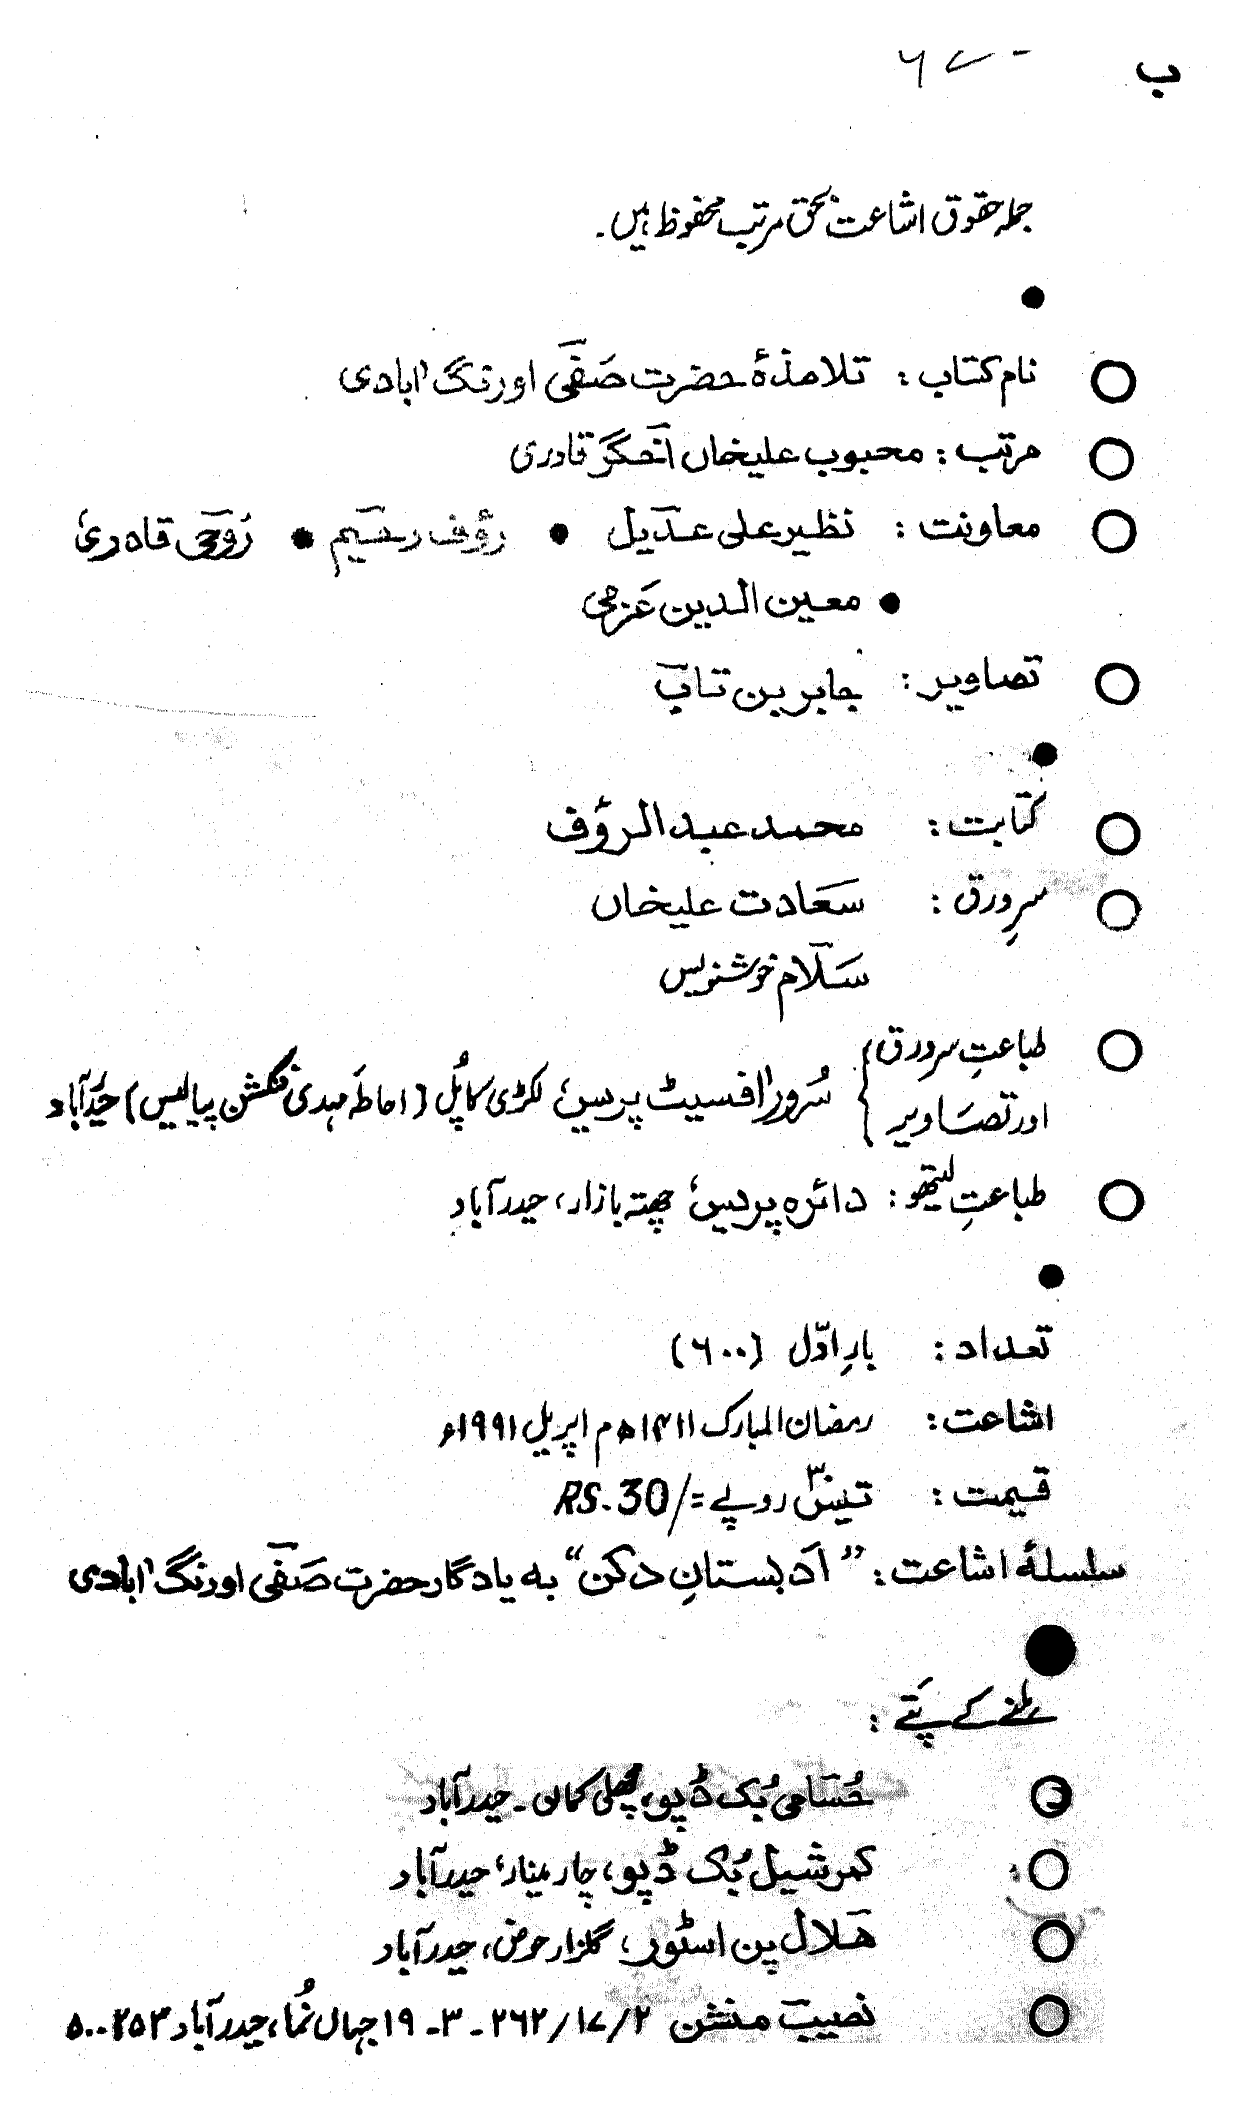 ب
جملہ حقوق اشاعت بحق مرتب محفوظ ہیں۔
نام کتاب : تلامذۂ حضرت صفی اورنگ آبادی
مرتب : محبوب علیخاں اخگر قادری
معاونت : نظیر علی عدیل ● رؤف رحیم ● روحی قادری
● معین الدین عزمی
تصاویر : جابر بن تاب
کتابت : محمد عبد الرؤف
سرِورق : سعادت علیخاں
سلام خوشنویس
طباعتِ سرورق اور تصاویر } سُرور آفسیٹ پریس، لکڑی کا پُل (احاطہ مہدی فنکشن پیالیس) حیدرآباد
طباعتِ لیتھو : دائرہ پریس، چھتہ بازار، حیدرآباد
تعداد : بارِ اوّل (۶۰۰)
اشاعت : رمضان المبارک ۱۴۱۱ھ م اپریل ۱۹۹۱ء
قیمت : تیس۳۰ روپے =/RS. 30
سلسلۂ اشاعت : ”ادبستانِ دکن“ بہ یادگار حضرت صفی اورنگ آبادی
ملنے کے پتے :
حُسامی بُک ڈپو، مچھلی کمان۔ حیدرآباد
کمرشیل بُک ڈپو، چار مینار، حیدرآباد
ھلال پن اسٹور، گلزار حوض، حیدرآباد
نصیب منشن ۲/۱۷/۲۶۲ ۔ ۳۔ ۱۹ جہاں نُما، حیدرآباد ۵۰۰۲۵۳